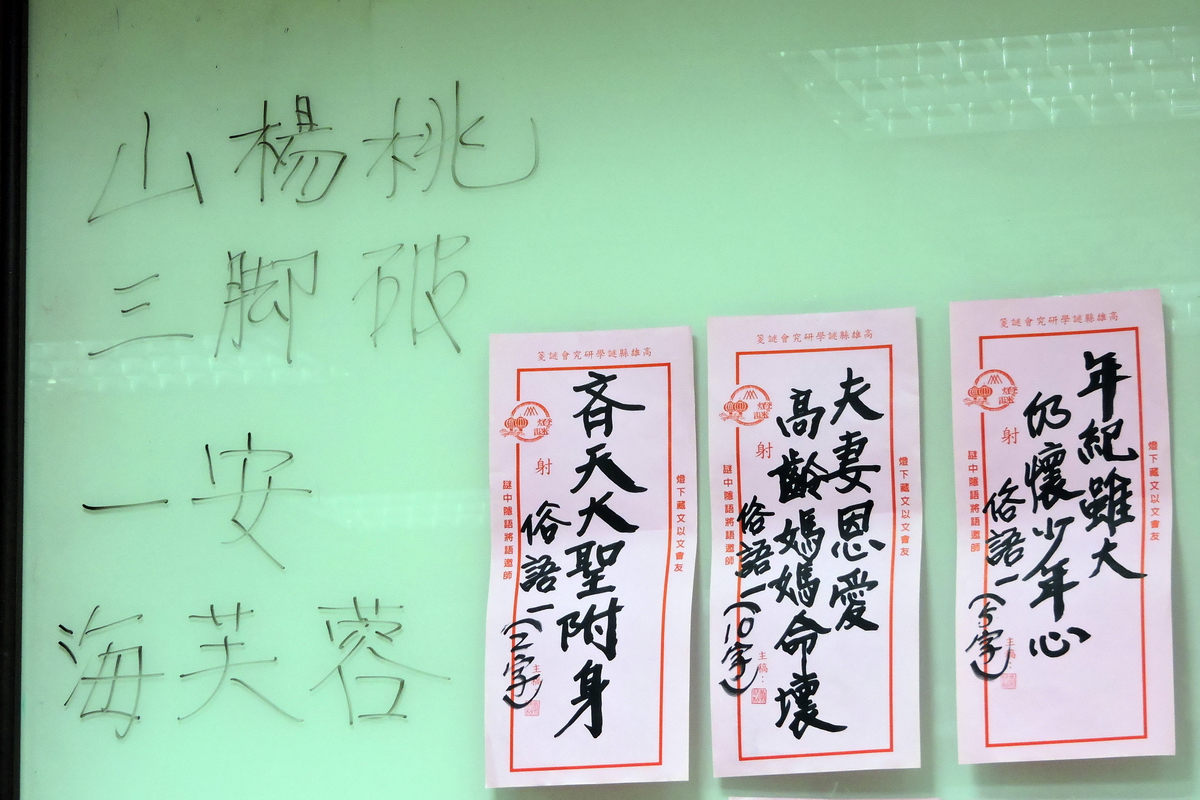 山楊桃
三脚破
一安
海芙蓉
高雄縣謎學研究會謎箋
燈下藏文以文會友
斉天大聖附身
射
俗語一(三字)
謎中隨語將語邀師
主稿:
高雄縣謎學研究會謎箋
燈下藏文以文會友
夫妻恩愛
高齡媽媽命壞
射
俗語一(10字)
謎中隨語將語邀師
主稿:
高雄縣謎學研究會謎箋
燈下藏文以文會友
年紀雖大
仍懷少年心
射
俗語一(5字)
謎中隨語將語邀師
主稿: